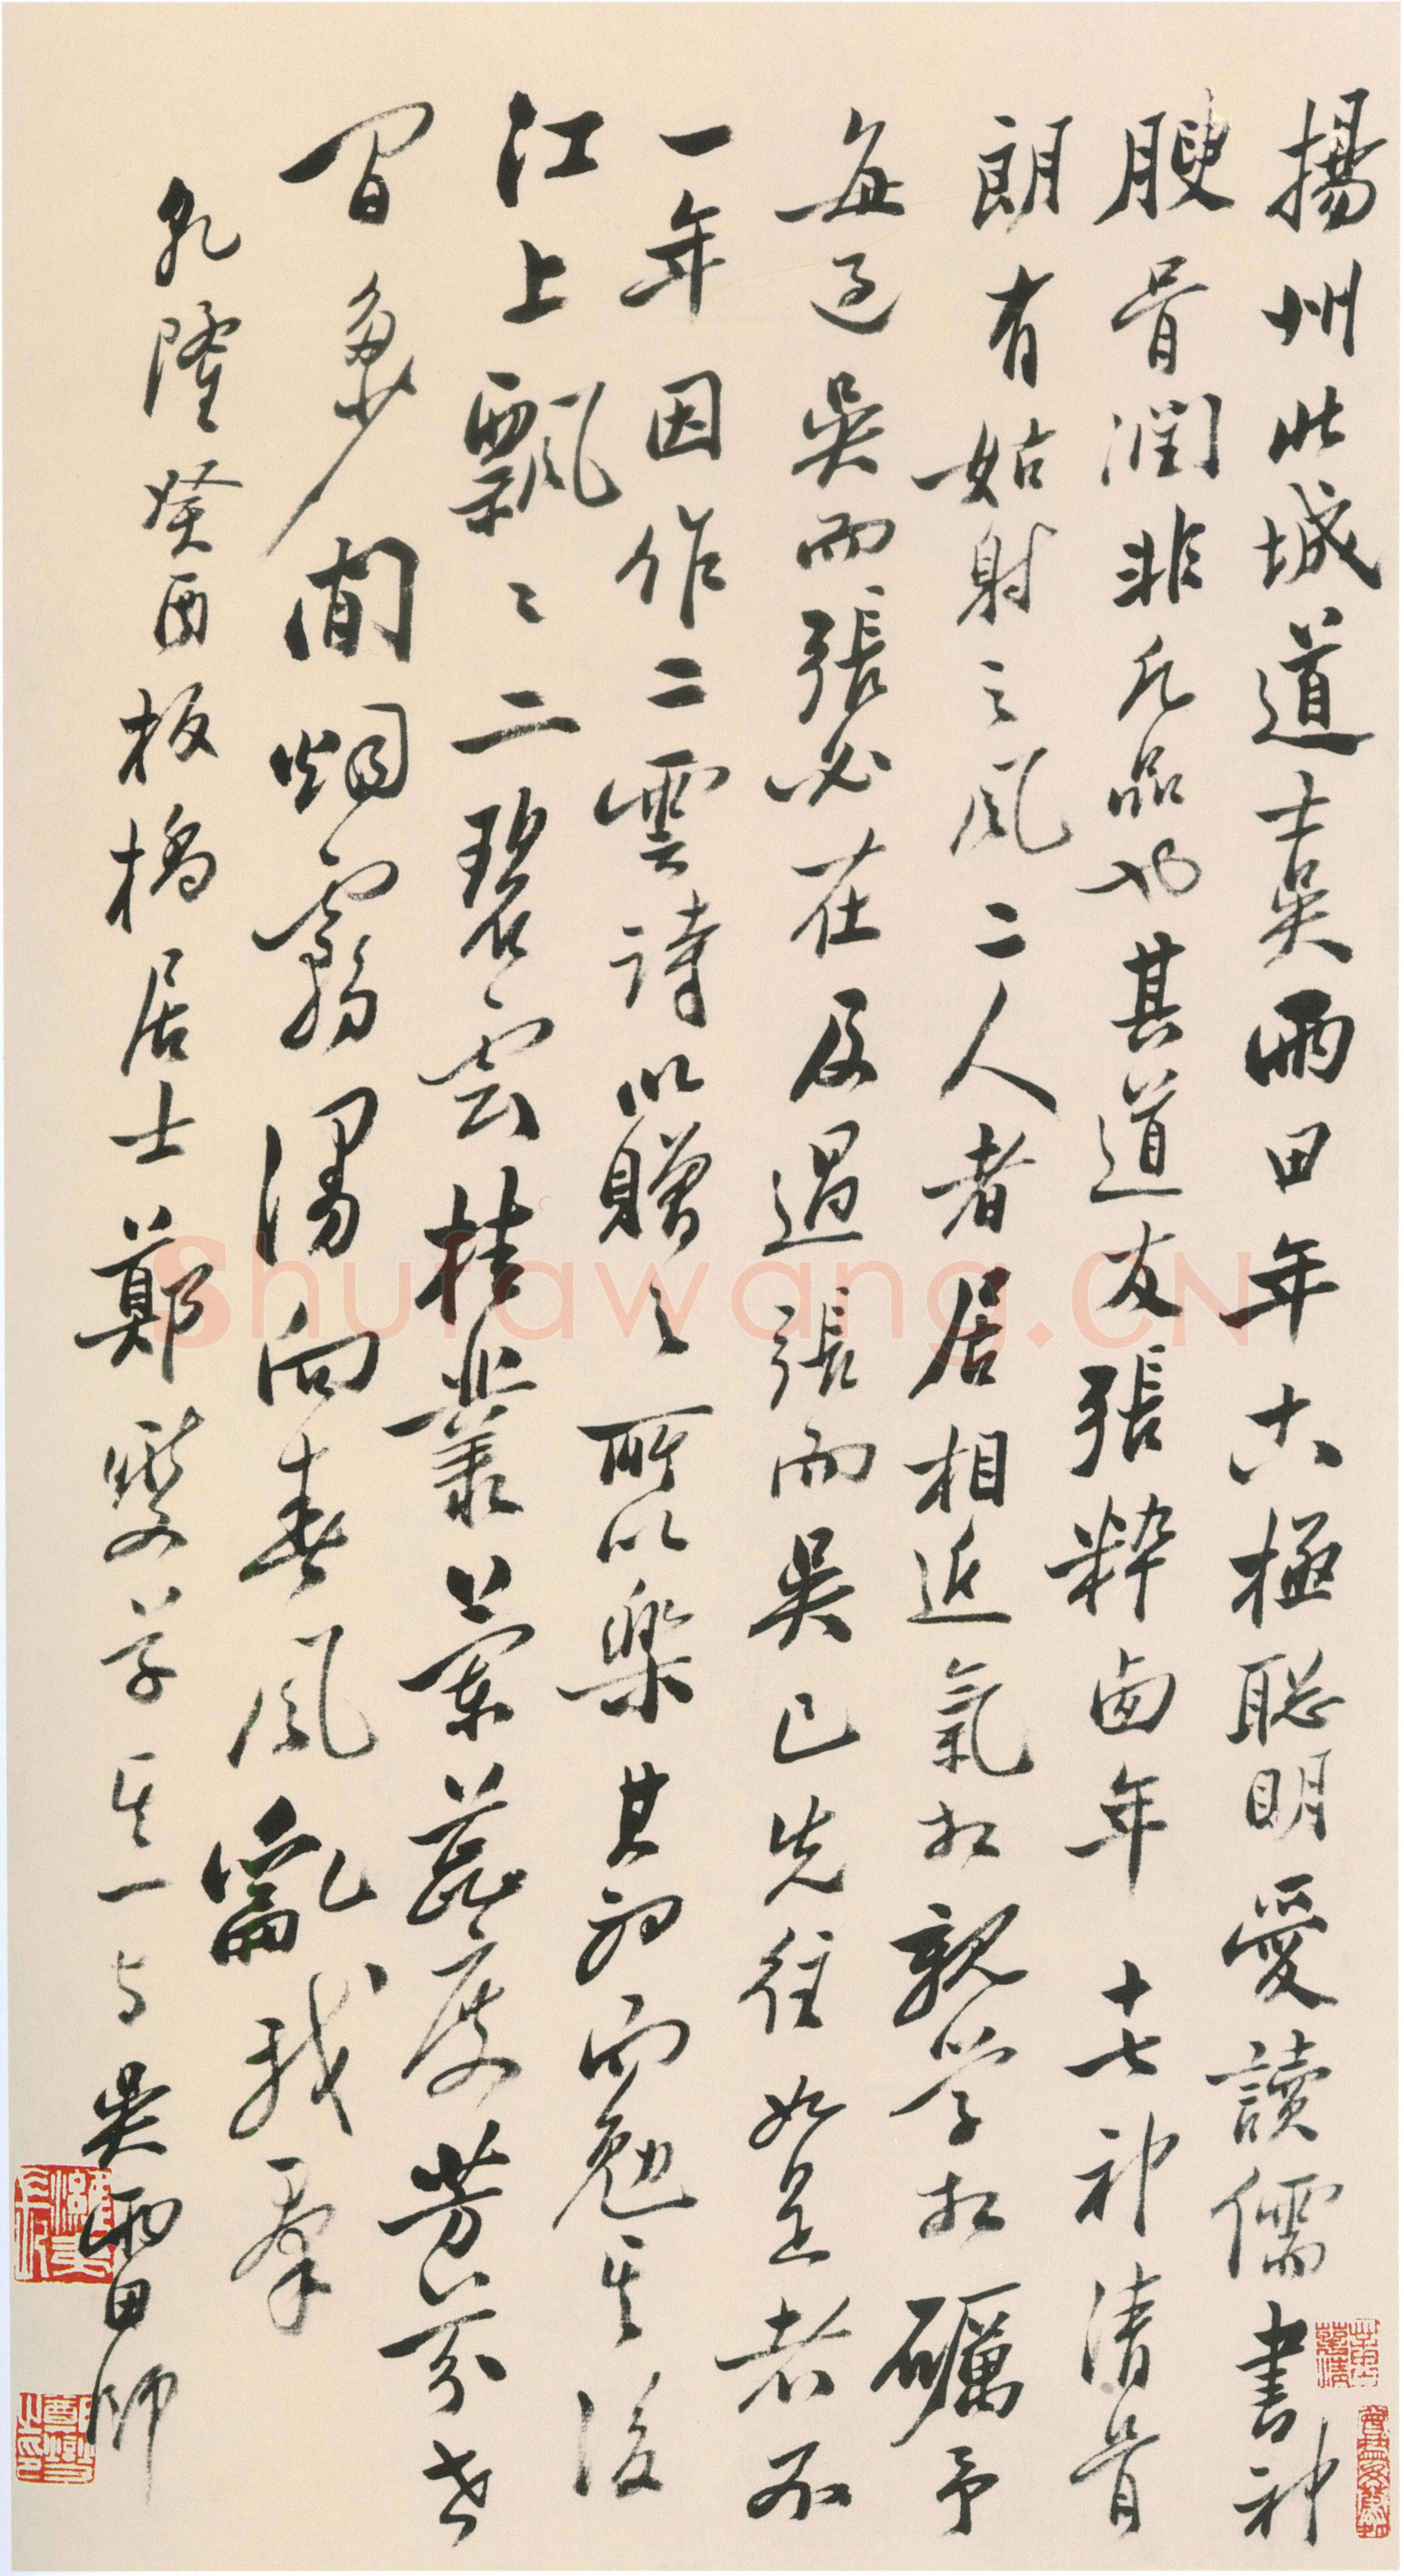 揚州北城道士吳雨田年十六極聰明愛讀儒書神
腴骨潤非凡品也其道友張粹西年十七神清骨
朗有姑射之風二人者居相近氣相親學相礪予
每過吳而張必在及過張而吳已先往如是者不
一年因作二雲詩以贈之所以樂其初而勉其後
江上飄〻二碧雲桂叢蘭蕊度芳芬世
間多少閒烟靄漫向春風亂我羣
乾隆癸酉板橋居士鄭燮草其一与吳雨田師
Shufawang.CN